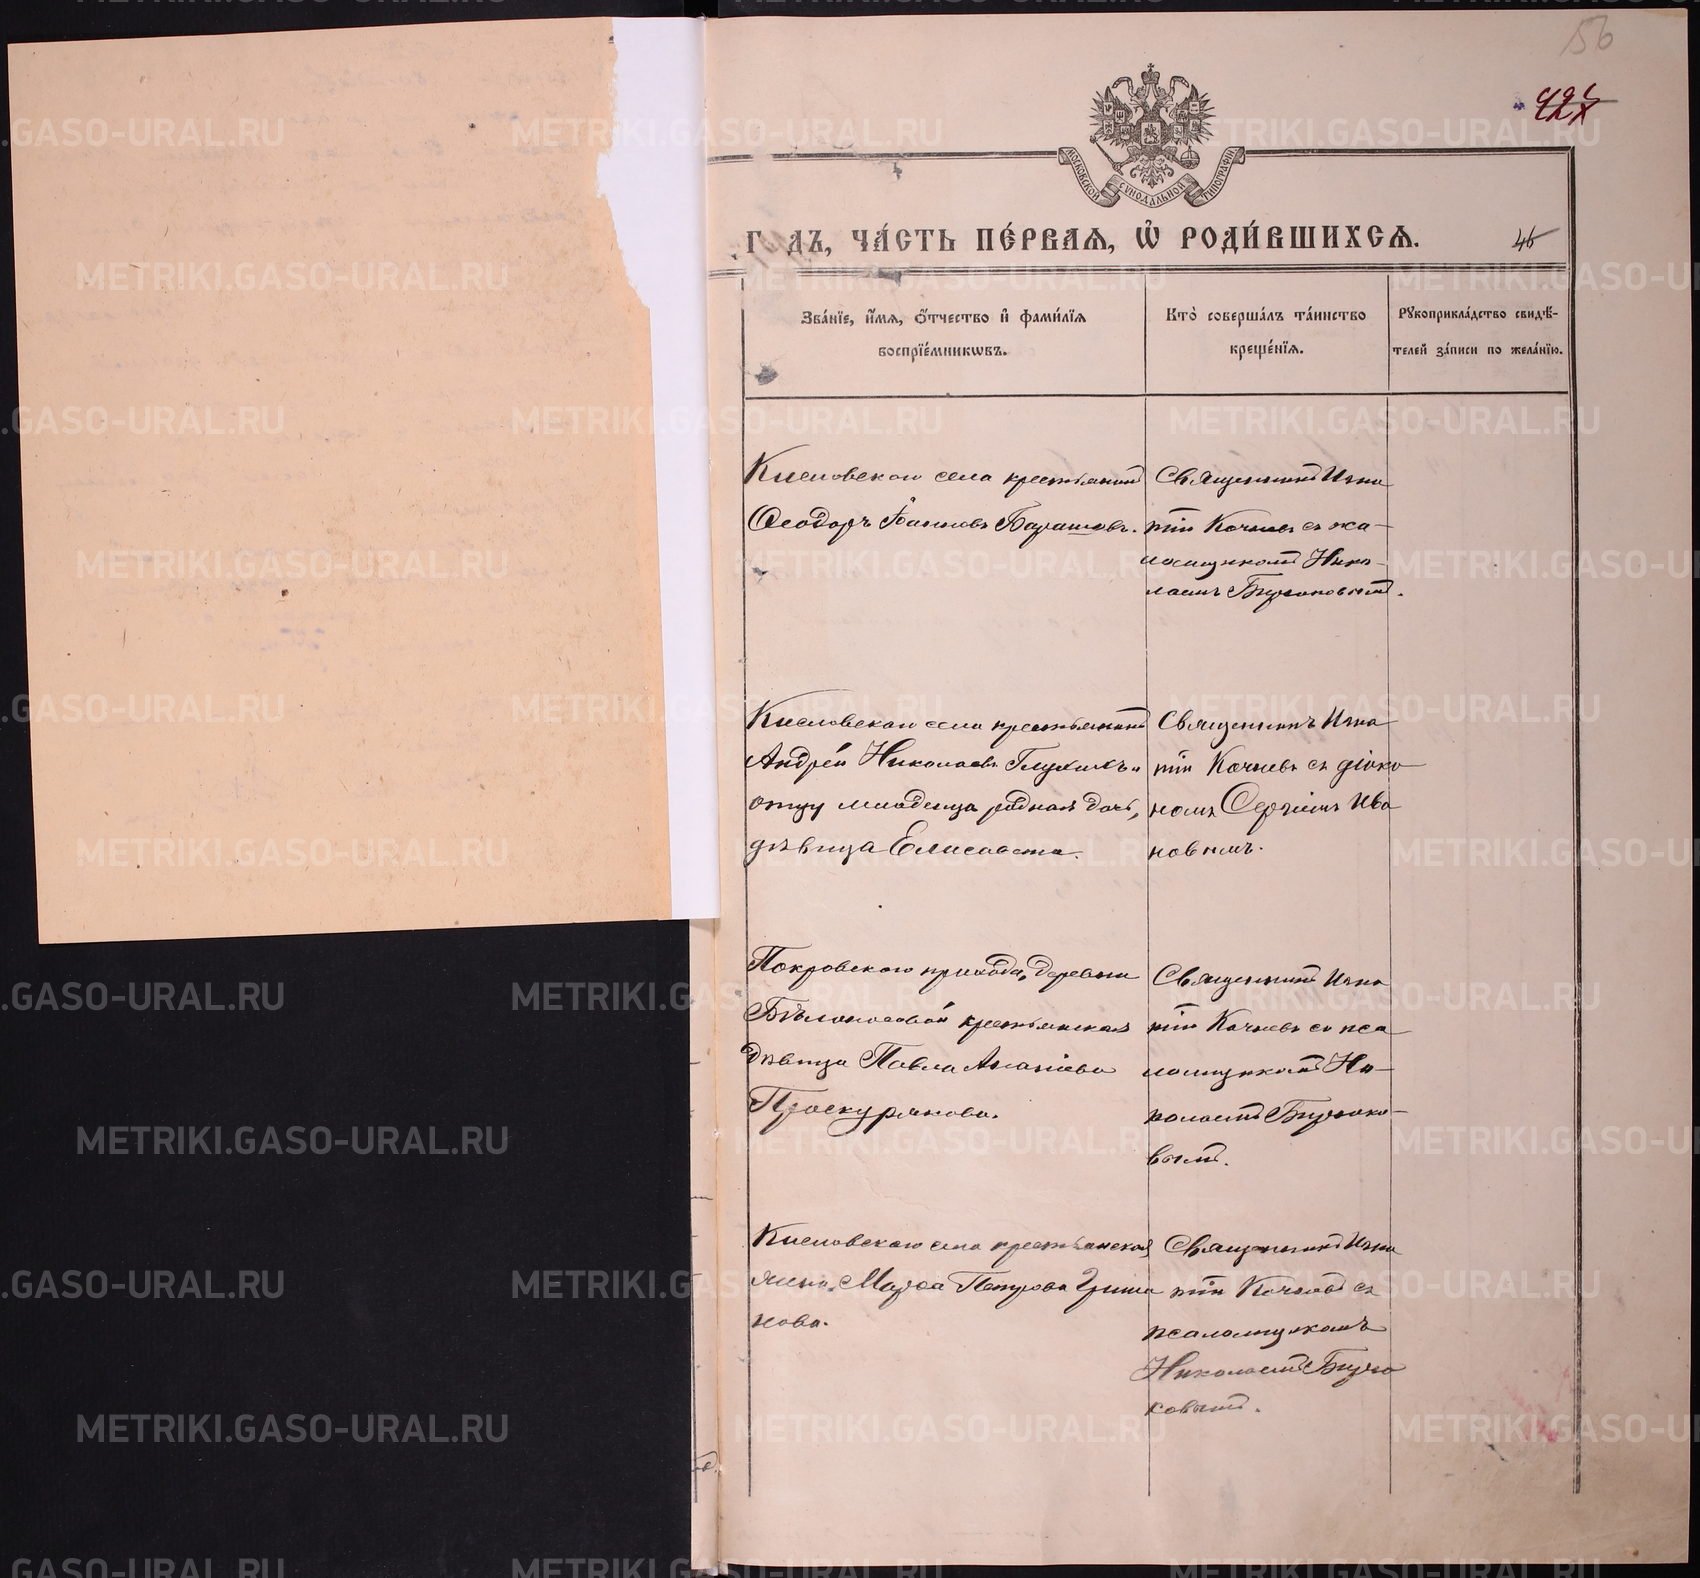 56
46
МОСКОВСКОЙ СѴНОДАЛЬНОЙ ТИПОГРАФІИ
Г ДЪ, ЧА́СТЬ ПЕ́РВАѦ, Ѽ РОДИ́ВШИХСѦ.
Зва́нїе, и҆́мѧ, ѻ҆́тчество и҆ фами́лїѧ
воспрїе́мникѡвъ.
Кто̀ соверша́лъ та́инство
креще́нїѧ.
Рꙋкоприкла́дство свидѣ́-
телей за́писи по жела́нїю.
Кисловскаго села крестьянинъ
Ѳеодоръ Іоанновъ Барашовъ.
Священникъ Игна
тій Кочневъ съ пса-
ломщикомъ Нико-
лаемъ
Кисловскаго села крестьянинъ
Андрей Николаевъ Глухихъ и
отцу младенца родная дочь,
дѣвица Елисавета.
Священникъ Игна
тій Кочневъ съ діако
номъ Сергіемъ Ива
новымъ.
Покровскаго прихода, деревни
Бѣлоносовой крестьянская
дѣвица Павла Ананіева
Проскурякова.
Священникъ Игна
тій Кочневъ съ пса
ломщикомъ Ни-
колаемъ
вымъ.
Кисловскаго села крестьянская
жена Марѳа Петрова Гриша
нова.
Священникъ Игна
тій Кочневъ съ
псаломщикомъ
Николаемъ
ковымъ.
METRIKI.GASO-URAL.RU